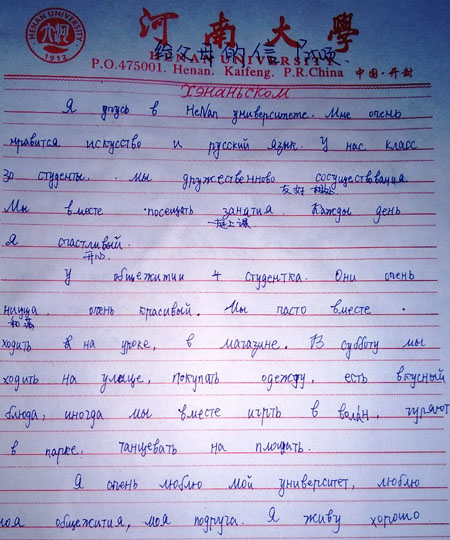 HENAN UNIVERSITY
1912
河南大學
给父母的信
HENAN UNIVERSITY
P.O.475001. Henan. Kaifeng. P.R.China 中国·开封
Хэнаньском
Я учусь в HeNan университете. Мне очень
нравится искуство и русский язык. У нас класс
30 студенты. Мы дружественново сосуществования
友好 相处
Мы вместе посещать занатия. Кажды день
一起上课
Я счастливый.
开心
У общежитии 4 студентка. Они очень
очень красивый. Мы часто вместе
和蔼
ходить на уроке, в магазине. В субботу мы
ходить на улыце, покупать одежду, есть вкусный
блюда, иногда мы вместе игрть в волан, гуряют
в парке, танцевать на площить.
Я очень люблю мой университет, люблю
моя общежития, моя подруга. Я живу хорошо